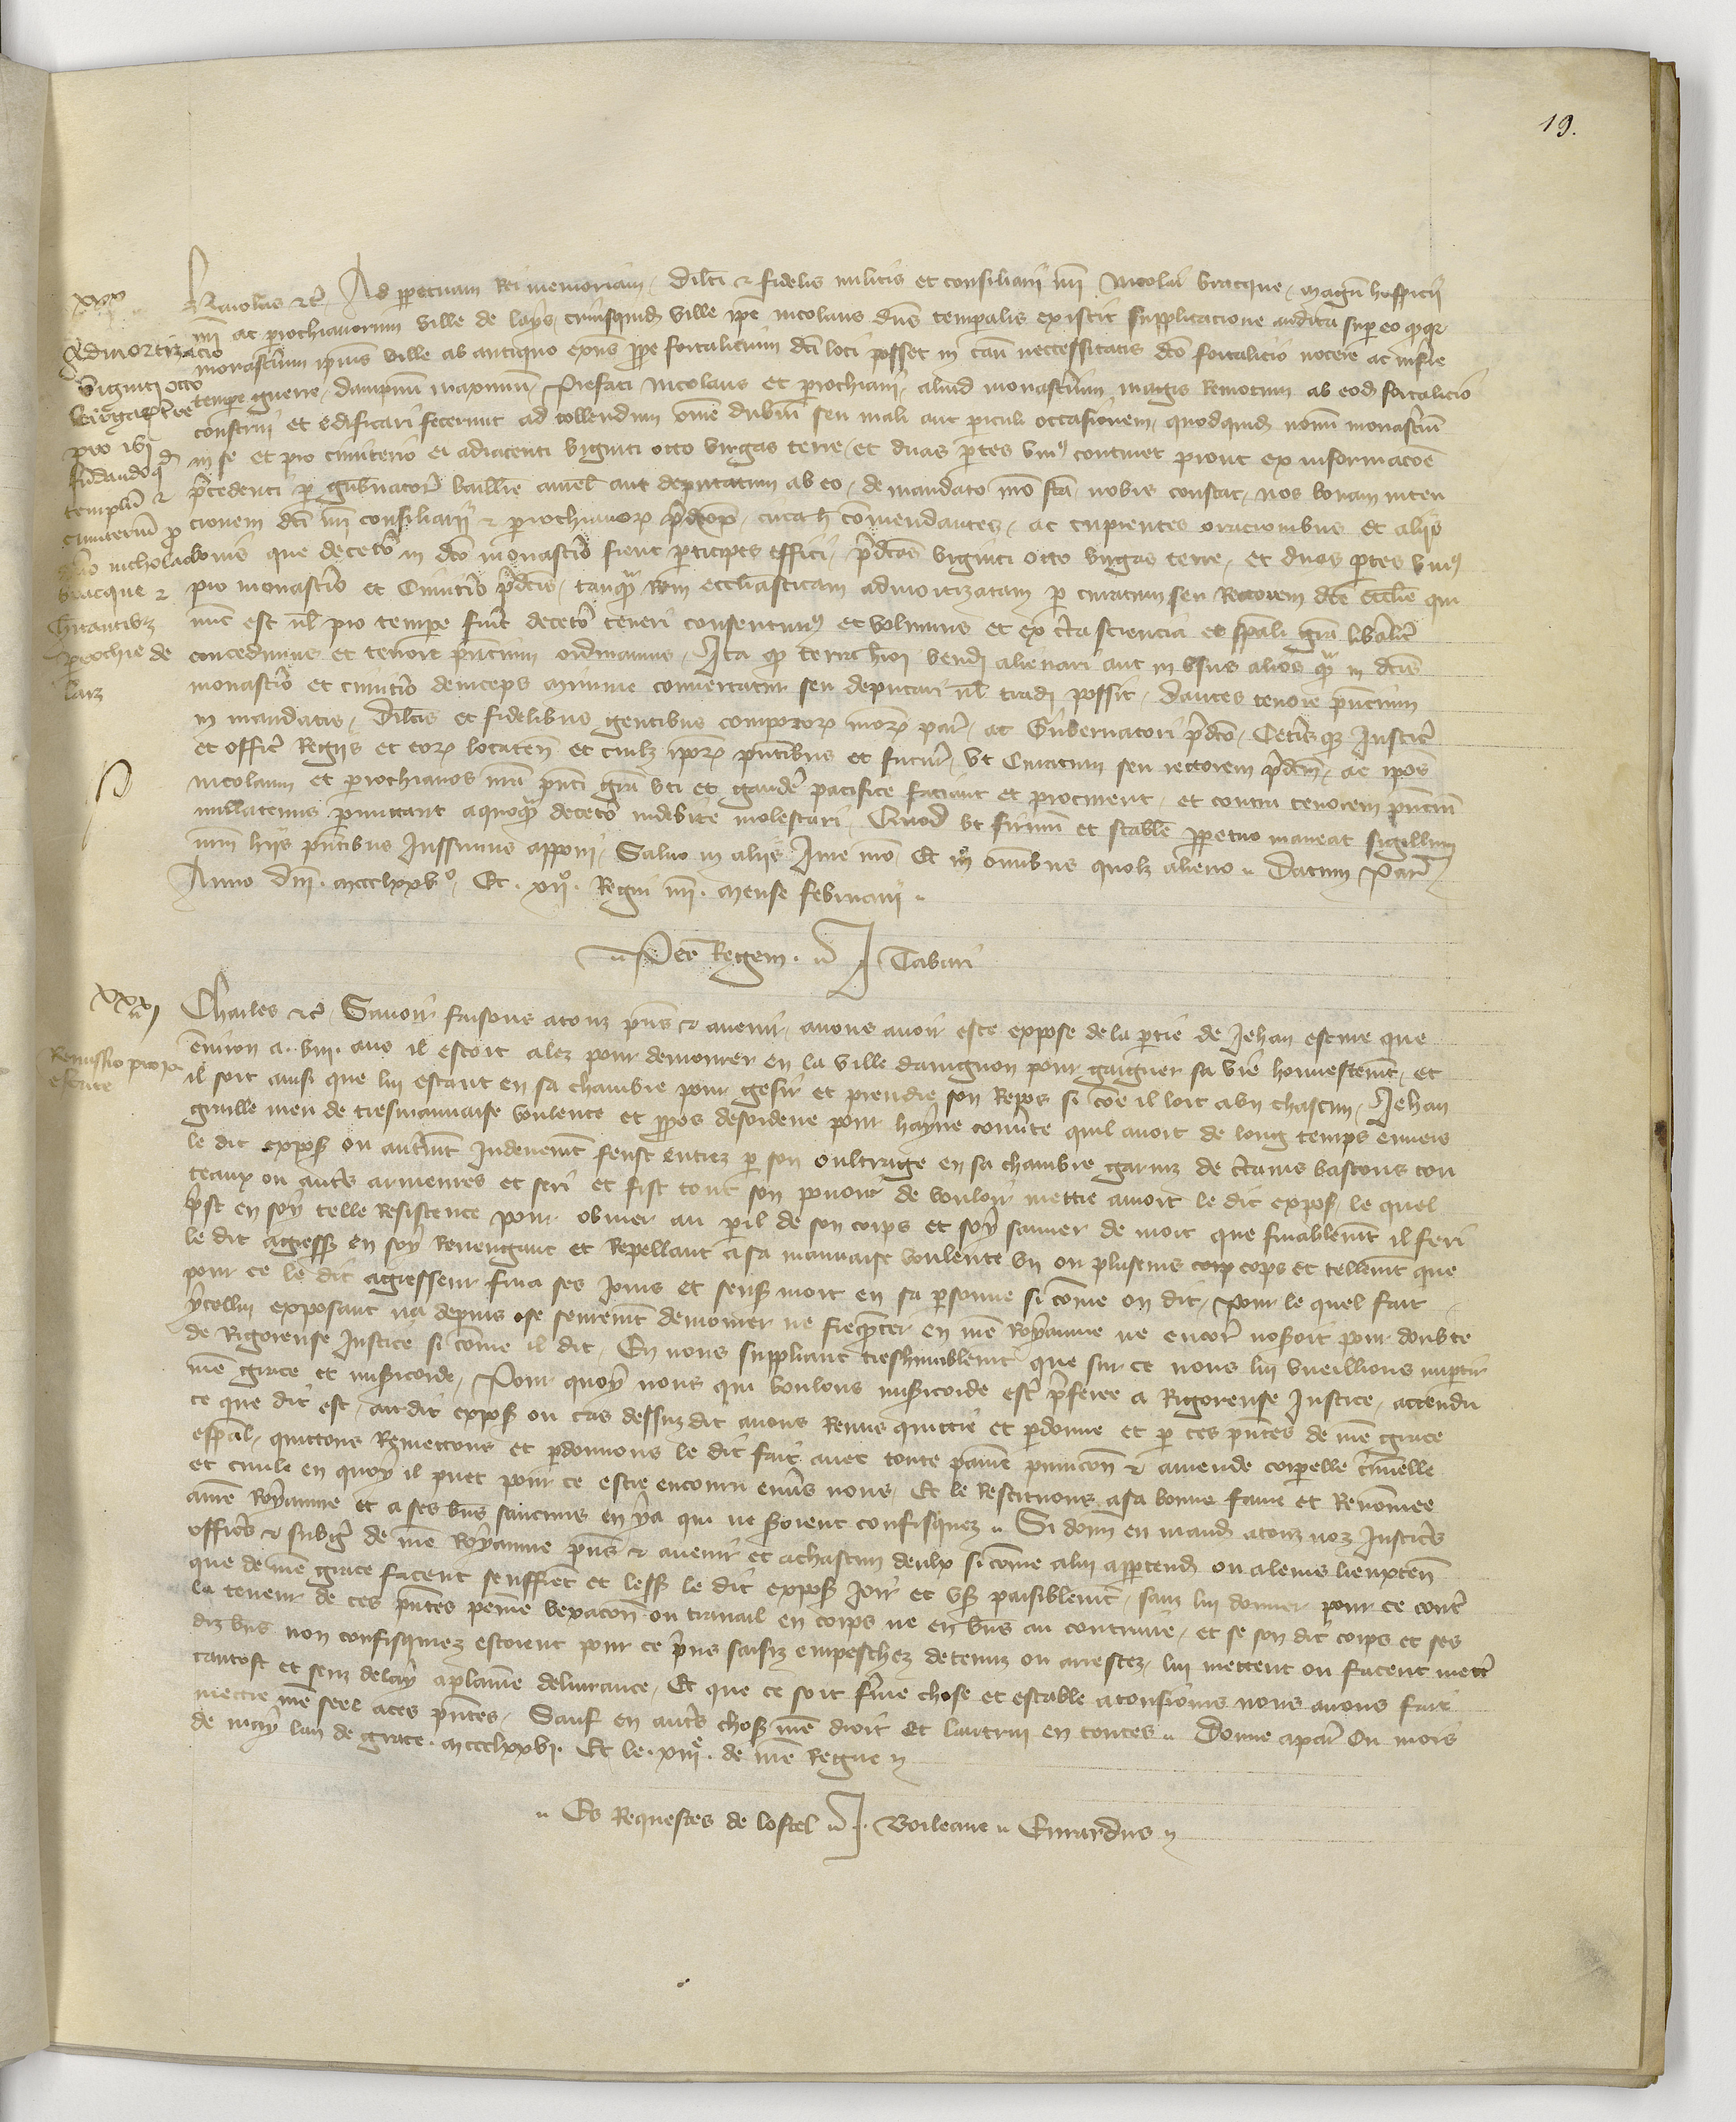 19.
xxx
Admortizacio
viginti octo
virgarum terre
pro ibi
fundandoque
templum et
cimiterium pro
domino nicholao
bracque et
habitantibus
parrochie de
larz
Karolus etc. Ad perpetuam Rei memoriam. Dilecti et fidelis militis et consiliarii nostri Nicolai bracque, magistri hospicii
nostri ac parrochianorum ville de lays, cuiusquidem ville ipse nicolaus dominus temporalis existit supplicacione audita super eo quod quia
monasterium ipsius ville ab antiquo prope fortalicium dicti loci posset in casu neccessitatis dicto fortalicio nocere ac inferre
tempore guerre, dampnum maximum, Prefati Nicolaus et parrochiani, aliud monasterium magis Remotum ab eodem fortalicio
construi et edificari fecerunt ad tollendum omne dubium seu mali aut periculi occasionem, quodquidem novum monasterium
in se et pro cimiterio ei adiacenti viginti octo virgas terre, et duas partes unius continet prout ex informacione
precedenti per gubernatorem baillivie aurel aut deputatum ab eo, de mandato nostro facta nobis constat, Nos bonam inten
cionem dicti nostri consiliarii et parrochianorum predictorum, circa hec commendantes, ac cupientes oracionibus et aliis
bonis que decetero in dicto monasterio fient participes effici, predictas viginti octo virgas terre, et duas partes unius
pro monasterio et Cimiterio predictis, tanquam Rem ecclesiasticam admortizatam per curatum seu Rectorem dicte ecclesie qui
nunc est vel pro tempore fuerit decetero teneri consentimus et volumus et ex certa sciencia et speciali gratia liberaliter
concedimus et tenore presentium ordinamus, Ita quod terra huiusmodi vendi alienari aut in usus alios quam in dictis
monasterio et cimiterio deinceps minime convertatur seu deputari vel tradi possit, Dantes tenore presentium
in mandatis, Dilectis et fidelibus gentibus compotorum nostrorum par, ac Gubernatori predicto, Ceterisque Justic
et offic Regiis et eorum locaten et cuilibet ipsorum presentibus et futur, ut Curatum seu rectorem predictum, ac ipsos
nicolaum et parrochianos nostra presenti gratia uti et gaudere pacifice faciant et procurent, et contra tenorem presentium
nullatenus permittant aquoquam decetero indebite molestari, Quod ut firmum et stabile perpetuo maneat sigillum
nostrum hiis presentibus Jussimus apponi, Salvo in aliis Jure nostro, Et in omnibus quolibet alieno. Datum Par
Anno Dni. mccclxxvo, Et. xiio. Regni nri. mense februarii.
Per Regem. J Tabari
xxxi
Remissio pro Jo
esture
Charles etc. Savoir faisons atouz presens et avenir, avons avoir este expose de la partie de Jehan esture que
environ a .viii. ans il estoit alez pour demourer en la ville davignon pour gaigner sa vie honnestement, et
il soit ainsi que lui estant en sa chambre pour gesir et prendre son Repos si comme il loit a un chascun, Jehan
graille meu de tresmauvaise voulente et propos desordene pour hayne couverte quil avoit de long temps envers
le dit expos ou autrement Induement feust entrez par son oultrage en sa chambre garniz de certains bastons cou
teaux ou autres armeures et feri et fist tout son povoir de vouloir mettre amort le dit expos, le quel
prist en soy telle Resistence pour obvier au peril de son corps et soy sauver de mort que finablement il feri
le dit agresseur en soy Revengant et Repellant a sa mauvaise voulente un ou pluseurs cops et tellement que
pour ce le dit agresseur fina ses jours et feust mort en sa personne si comme on dit, Pour le quel fait
ycellui exposant na depuis ose seurement demourer ne frequenter en nostre Royaume ne encor noseroit pour doubte
de Rigoreuse Justice si comme il dit, En nous suppliant treshumblement que sur ce nous lui vueillions impartir
nostre grace et misericorde, Pour quoy nous qui voulons misericorde estre preferee a Rigoreuse Justice, attendu
ce que dit est, audit expos ou cas dessuz dit avons Remis quittie et pardonne et par ces presentes de nostre grace
especial, quittons Remettons et pardonnons le dit fait avec toute paine punicion et amende corporelle criminelle
et civile en quoy il puet pour ce estre encouru envers nous, Et le Restituons asa bonne fame et Renommee
anostre Royaume et a ses biens saucuns en ya qui ne soient confisquez. Si donn en mandem atouz noz Justiciers
officiers et subgez de nostre Royaume presens et avenir et achascun deulx si comme alui appartendra ou aleurs lieuxten
que de nostre grace facent seuffrent et lessent le dit expos joir et user paisiblement, sanz lui donner pour ce contre
la teneur de ces presentes peine vexacion ou travail en corps ne en biens au contraire, et se son dit corps et ses
diz biens non confisquez estoient pour ce prins saisiz empeschez detenuz ou arrestez, lui mettent ou facent mettre
tantost et senz delay aplaine delivrance, Et que ce soit ferme chose et estable atousiours nous avons fait
mettre nostre seel aces presentes, Sauf en autres choses nostre droit et lautrui en toutes. Donne apar Ou mois
de may lan de grace. mccclxxvi. Et le .xiiie. de nostre Regne
Es Requestes de lostel. J. Boileaue. Evrardus